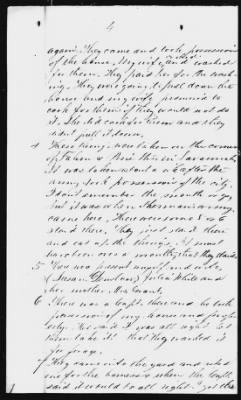 4
again. They came and took possession
of the house. My wife cooked and washed
for them. They paid her for the wash-
ing. They were going to pull down the
house and my wife promised to
cook for them if they would not do
it. She did cook for them and they
didn't pull it down.
4 These things were taken on the corner
of Fahm & Pine this in Savannah
It was taken about a week after the
army took possession of the city.
I don't remember the month or year,
but it was when Sherman's army
came here. There were some 5 or 6
staid there. They just staid there
and eat up the things. It must
have been over a month that they staid.
5 You was present myself and wife,
(Susan Dowlson) Julia White and
her mother Mrs Grant.
6 There was a Capt. there and he took
possession of my house and prop-
erty. He said it was all right to
them take it that they wanted it
for forage.
7 They came into the yard and asked
me for the harness where the Capt.
said it would be all right to get the